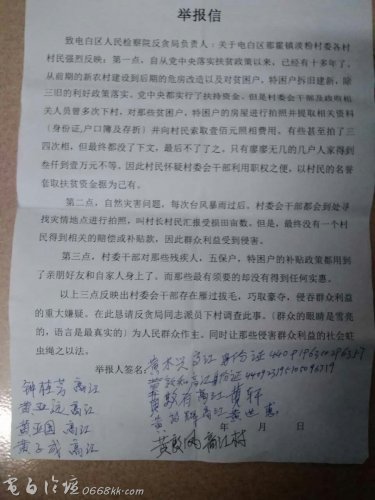 举报信
致电白区人民检察院反贪局负责人：关于电白区那霍镇茂粉村委各村
村民强烈反映：第一点，自从党中央落实扶贫政策以来，已经有十多年了、
从前期的新农村建设到后期的危房改造以及对贫困户，特困户拆旧建新，除
三旧的利好政策落实。党中央都实行了扶持资金。但是村委会干部及政府相
关人员曾多次下村，对那些贫困户，特困户的房屋进行拍照并提取相关资料
（身份证,户口簿及存折）并向村民索取壹佰元照相费用。有些甚至拍了三
四次相，但最终都没了下文，最后不了了之，只有廖廖无几的几户人家得到
叁仟到壹万元不等。因此村民怀疑村委会干部利用职权之便，以村民的名誉
套取扶贫资金据为己有。
第二点，自然灾害问题，每次台风暴雨过后，村委会干部都会到处寻
找灾情地点进行拍照，叫村长村民汇报受损田亩数。但是，最终没有一个村
民得到相关的赔偿或补贴款，因此群众利益受到侵害。
第三点，村委干部对那些残疾人，五保户，特困户的补贴政策都用到
了亲朋好友和自家人身上了。而那些最有须要的却没有得到任何实惠。
以上三点反映出村委会干部存在雁过拔毛，巧取豪夺，侵吞群众利益
的重大嫌疑。在此恳请反贪局同志派员下村调查此事。（群众的眼睛是雪亮
的，语言是最真实的）为人民群众作主。同时让那些侵害群众利益的社会蛀
虫绳之以法。
举报人签名：
黄亚国 高江
年 月 日
电白论坛 0668kk.com